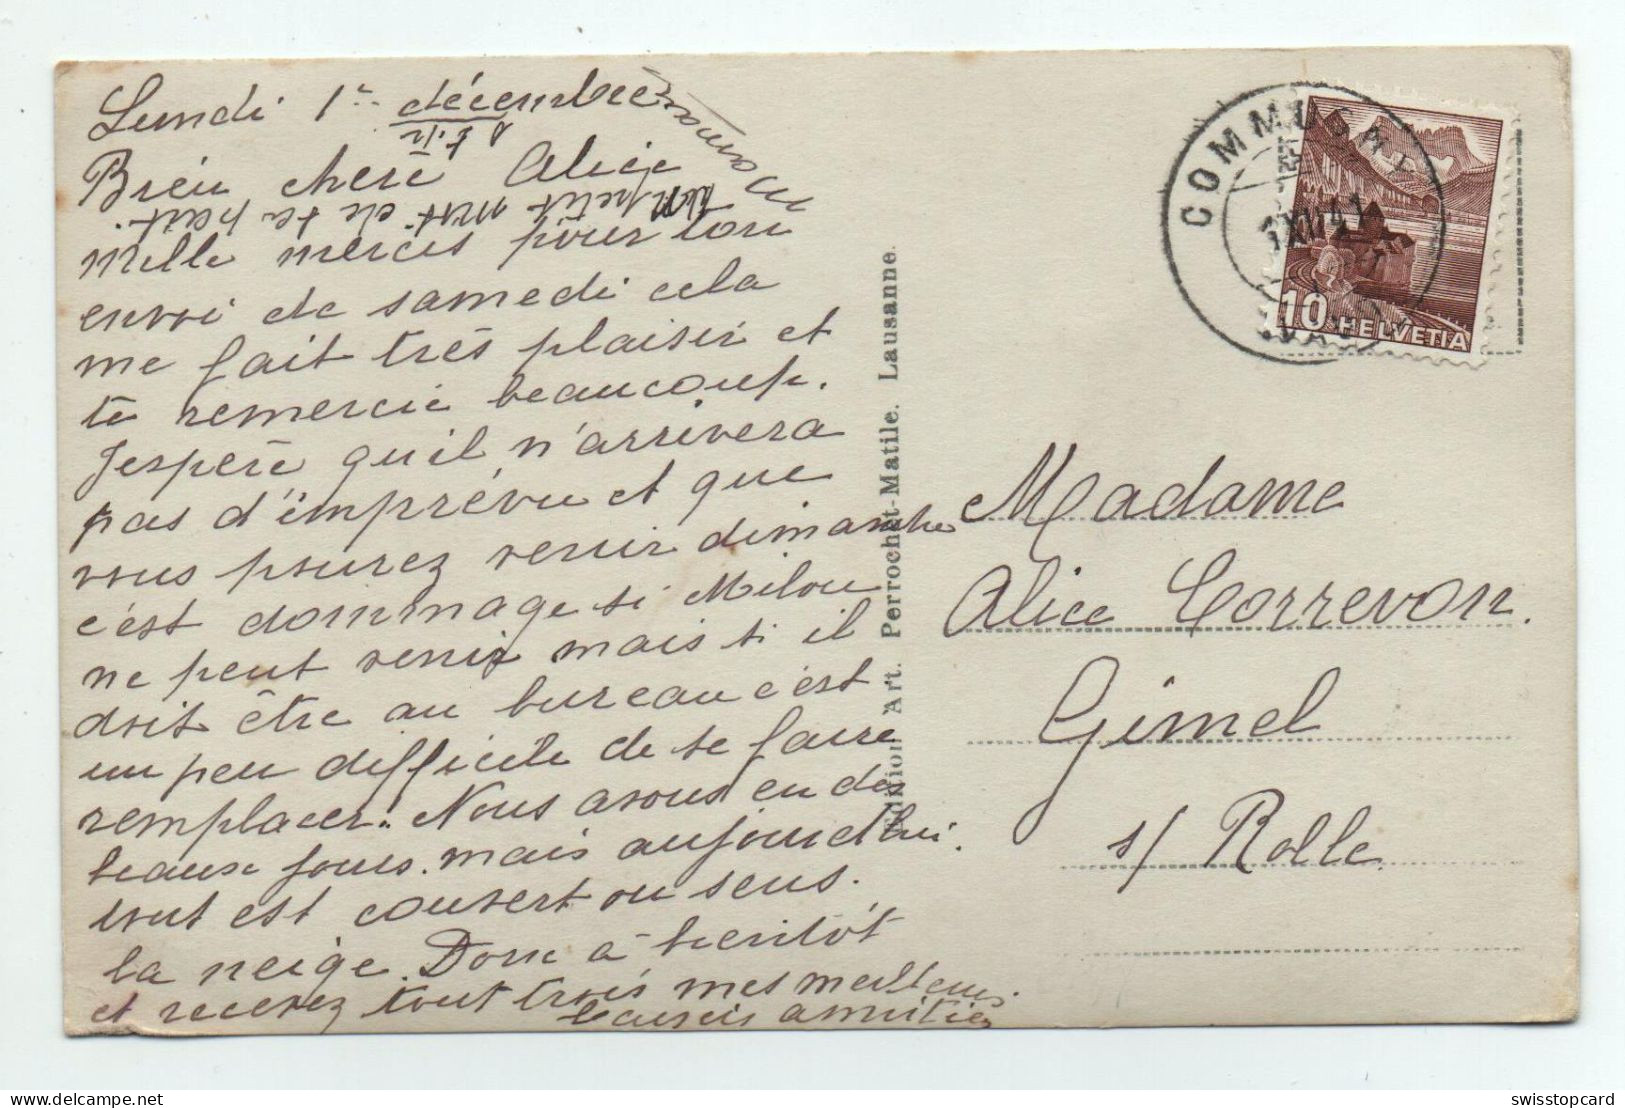 Lundi 1er décembre
Bien chère Alice
Mille mercis pour ton
envoi de samedi cela
me fait très plaisir et
te remercie beaucoup.
J'espère qu'il n'arrivera
pas d'imprévu et que
vous pourez venir dimanche
c'est dommage si Milou
ne peut venir mais si il
doit être au bureau c'est
un peu difficile de se faire
remplacer. Nous avons eu de
beaux jours. mais aujourd'hui.
tout est couvert ou sens.
la neige. Donc à bientôt
et recevez tout trois mes meilleurs.
baisers amitiés
un petit mot de ta part.
Maman
Edition Art. Perrochet-Matile. Lausanne.
COMMUGNY
1 XII 41
10 HELVETIA
Madame
Alice Correvon.
Gimel
s/ Rolle
swisstopcard